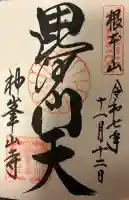 根本山
令和七年
十一月十二日
毘沙門天
神峯山寺